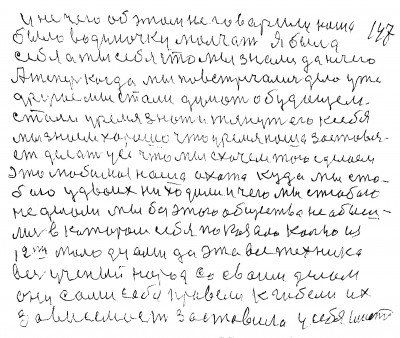 и нечего об этом не говарили наша 147
было водиночку молчат я была
себя ты себя что мы знали да нечего
А теперь когда мы повстречались дело уже
другое мы стали думат о будущем.
стали время знат и тянут его к себе
мы знаем хорошо что время наша заставя-
ет делат усё что мы схочем того сделаем
это любимая наша охота куда мы с то-
бою удвоих ни ходили и чего мы с табою
не делали мы без этого общества не обашли-
мы в котором себя показала кольцо из
12ти молодчами да эта вся техника
весь ученый народ со своим делом
они сами себя привели к гибели их
зависемост заставила у себя имет